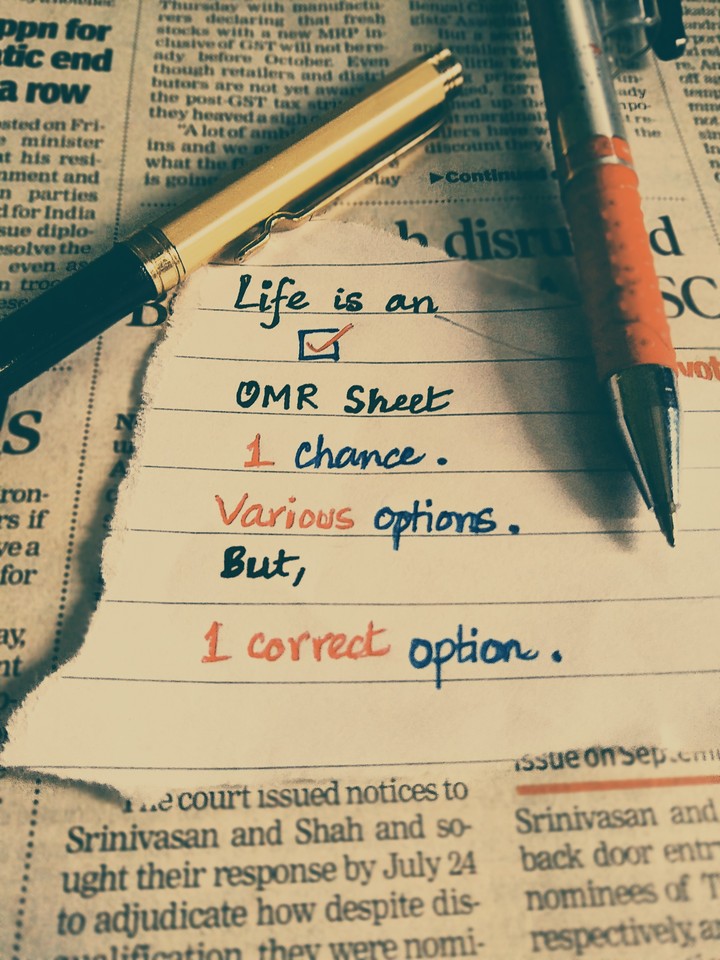 ppn for
tic end
a row
osted on Fri-
minister
at his resi-
nment and
n parties
d for India
use diplo-
esolve the
even as
Thursday with manufactu-
rers declaring that fresh
stocks with a new MRP in-
clusive of GST will not be re-
ady before October. Even
though retailers and distri-
butors are not yet aware
the post-GST tax
they heaved a sigh
"A lot of
ins and we
what the
is going
May
Continued
h disru d
SC
vot
Life is an
OMR Sheet
1 chance.
Various options.
But,
1 correct option.
s
ron-
rs if
ve a
for
ay,
nt
The court issued notices to
Srinivasan and Shah and so-
ught their response by July 24
to adjudicate how despite dis-
qualification, they were nomi-
issue on Sep
Srinivasan and
back door entr
nominees of T
respectively, a